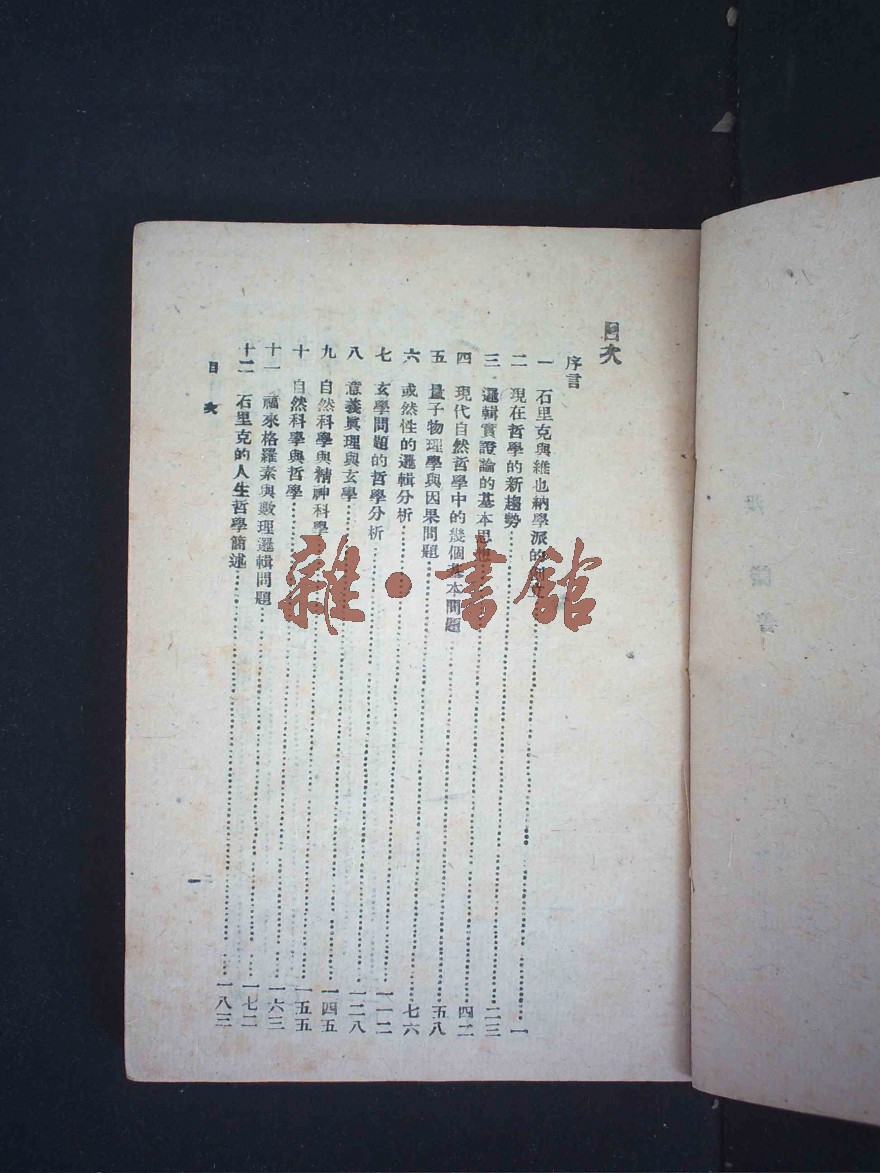 目次
序言
一 石里克與維也納學派的……一
二 現在哲學的新趨勢……二三
三 邏輯實證論的基本思想……四二
四 現代自然哲學中的幾個基本問題……五八
五 量子物理學與因果問題……七六
六 或然性的邏輯分析……一一二
七 玄學問題的哲學分析……一二八
八 意義眞理與玄學……一四五
九 自然科學與精神科學……一五五
十 自然科學與哲學……一六三
十一 福來格羅素與數理邏輯問題……一七二
十二 石里克的人生哲學簡述……一八三
目次
一
雜·書館